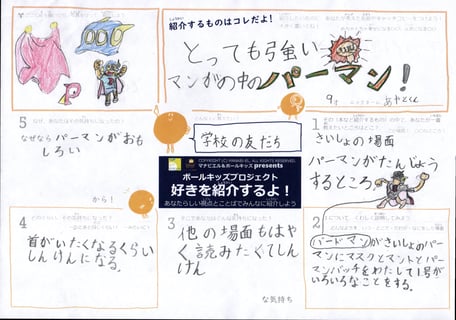 紹介するものはコレだよ!
とっても弓強い
マンガの中のパーマン!
9才
あやとくん
学校の友だち
COPYRIGHT (C) YAMAHA EL. ALL RIGHTS RESERVED.
マナビエル&ボールキッズ presents
ボールキッズプロジェクト
好きを紹介するよ!
あなたらしい視点とことばでみんなに紹介しよう
1
さいしょの場面
パーマンがたんじょう
するところ
2
バードマンがさいしょのパー
マンにマスクとマントとパー
マンバッチをわたして1号が
いろいろなことをする。
3
他の場面もはや
く読みたくてしん
けん
な気持ち
4
首がいたくなるくらい
しんけんになる。
5
なぜならパーマンがおも
しろい
から!